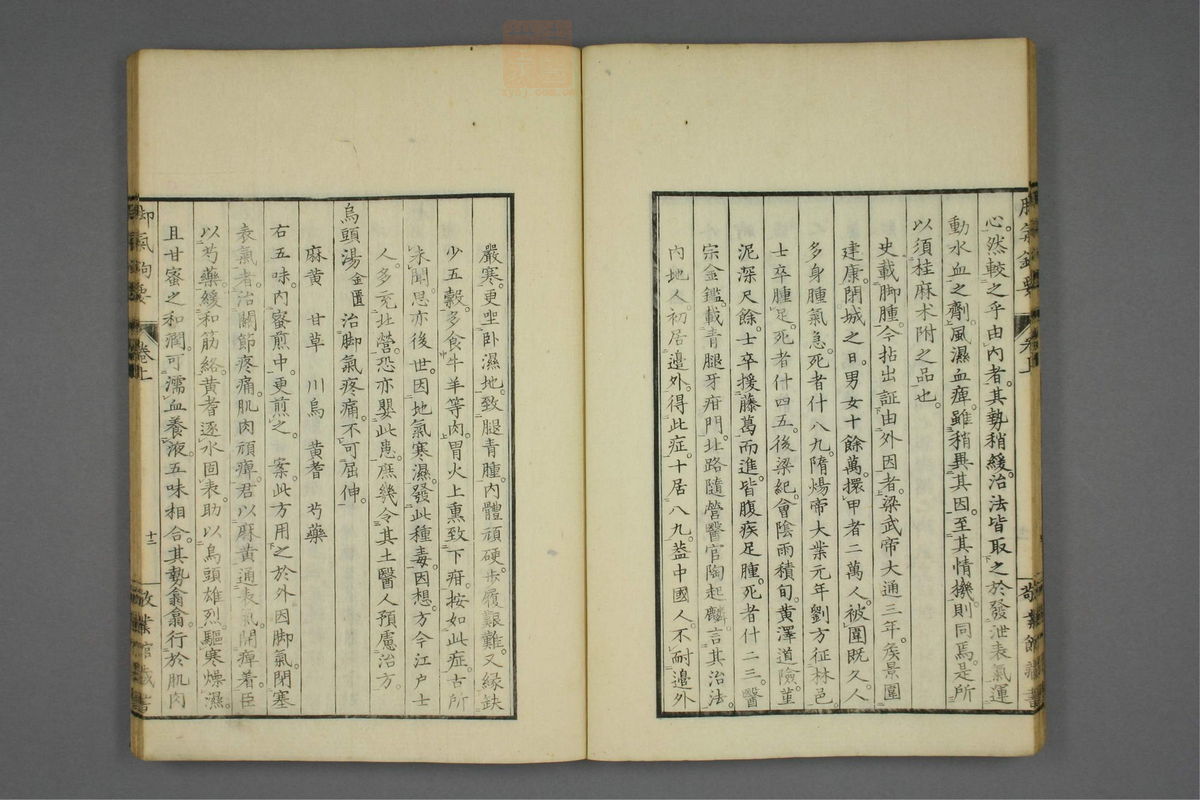 心。然較之乎由內者。其勢稍緩。治法皆取之於發泄表氣運
動水血之劑。風濕血痺。雖稍異其因。至其情機。則同焉。是所
以須桂麻朮附之品也。
史載脚腫。今拈出証由外因者。梁武帝大通三年。矦景圍
建康。閉城之日。男女十餘萬。擐甲者二萬人。被圍既久。人
多身腫氣急。死者什八九。隋煬帝大業元年劉方征林邑。
士卒腫足。死者什四五。後梁紀。會陰雨積旬。黃澤道險。菫
泥深尺餘。士卒援藤葛而進。皆腹疾足腫。死者什二三。醫
宗金鑑。載青腿牙疳門。北路隨營醫官陶起麟。言其治法。
內地人。初居邊外。得此症。十居八九。葢中國人。不耐邊外
嚴寒。更坐臥濕地。致腿青腫。內體頑硬。步履艱難。又緣缺
少五穀。多食牛羊等肉。胃火上熏。致下疳。按如此症。古所
未聞。思亦後世。因地氣寒濕。發此種毒。因想。方今江戶士
人。多充北營。恐亦嬰此患。庶幾令其土醫人預慮治方。
烏頭湯 金匱 治脚氣疼痛。不可屈伸。
麻黃 甘草 川烏 黃耆 芍藥
右五味。內蜜煎中。更煎之。 案。此方用之於外因脚氣。閉塞
表氣者。治關節疼痛。肌肉頑痺。君以麻黃通表氣。開痺着。臣
以芍藥。緩和筋絡。黃耆逐水固表。助以烏頭雄烈。驅寒燥濕。
且甘蜜之和潤。可濡血養液。五味相合。其勢翕翕。行於肌肉
脚氣鉤要
卷上
十二
敬業館藏書